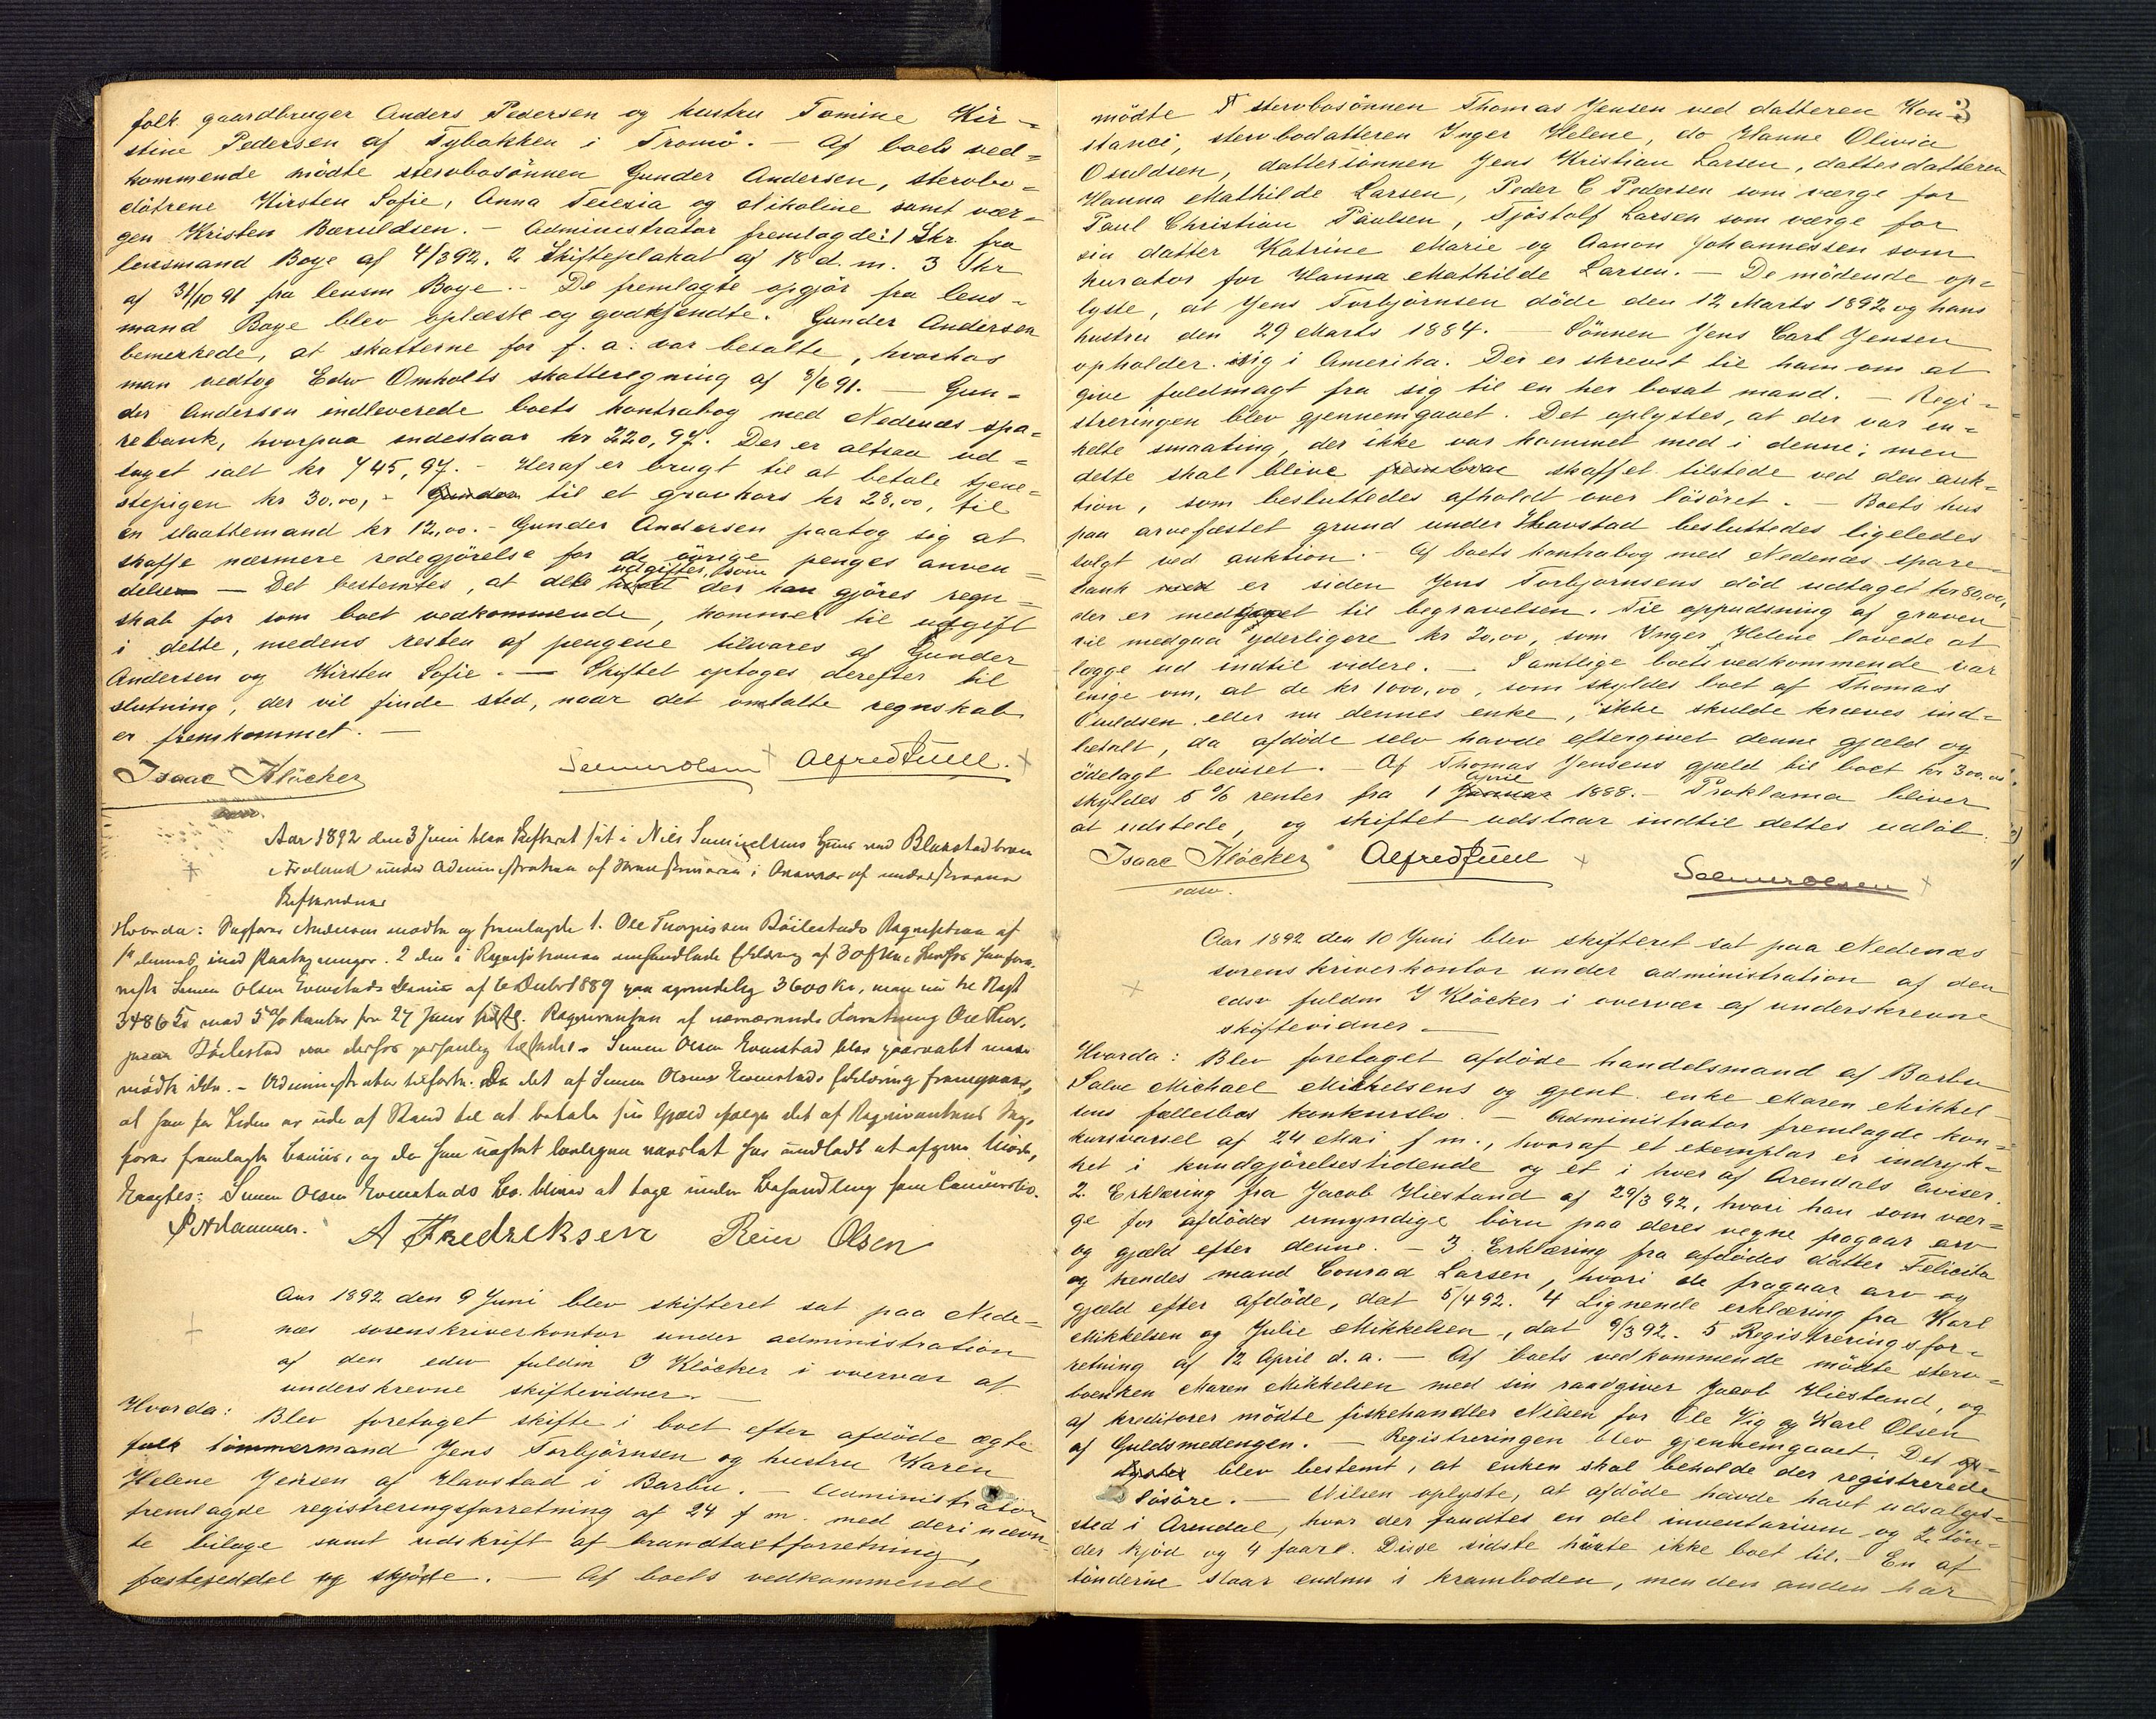 folk gaardbruger Anders Pedersen og hustru Tomine Kir-
stine Pedersen af Tybakken i Tromö. - Af boets ved-
kommende mödte stervbosönnen Gunder Andersen, stervbo-
döttrene Kirsten Sofie, Anna Teresia og Nikoline samt vær-
gen Kristen Baruldsen. - Administrator fremlagde: 1 Skr. fra
lensmand Boye af 4/3 92. 2 Skifteplakat af 18 d. m. 3 Skr
af 31/10 91 fra lensm Boye. - De fremlagte opgjör fra lens-
mand Boye blev oplæste og godkjendte. Gunder Andersen
bemerkede, at skatterne for f. a. var betalte, hvorhos
man vedtog Edw Omholts skatteregning af 8/6 91. - Gun-
der Andersen indleverede boets kontrabog med Nedenæs spa-
rebank, hvorpaa indestaar kr 220,97. Der er altsaa ud-
taget ialt kr 745,97. - Heraf er brugt til at betale tjene-
stepigen kr 30.00, - Gunder til et gravkors kr 28,00, til
en slaattemand kr 12,00. - Gunder Andersen paatog sig at
skaffe nærmere redegjörelse for de övrige penges anven-
udgifter, som
delse - Det bestemtes, at dele der kan gjöres regn-
skab for som boet vedkommende, kommer til udgift
i dette, medens resten af pengene tilsvares af Gunder
Andersen og Kirsten Sofie. - Skiftet optages derefter til
slutning, der vil finde sted, naar det omtalte regnskab
er fremkommet. -
Isaac Klöcker Selmer Olsen Alfred Juell.
Aar 1892 den 3 Juni blev Skifteret sat i Nils Hus ved Blakstadbroen
Froland under Administration af i Overvær af underskrevne
Skiftevidner
Hvorda: Sagförer Andersen mödte og fremlagde 1. Ole Böilestads Reqvisition af
med Paategninger. 2 den i Reqvisitionen omhandlede Erklæring af
Olsen Evenstads Bevis af 6 Debr 1889 paa oprindelig 3600 Kr, men nu til Rest
3486 50 med 5 % Renter fra 27 Juni Reqvirenten af nærværende Forretning Ole Thor-
jusen Böilestad var derfor personlig tilstede. Olsen Evenstad blev paaraabt men
mödte ikke. - Administrator tilförte: Da det af Olsen Evenstads Erklæring fremgaar,
at han for Tiden er ude af Stand til at betale sin Gjæld ifölge det af Reqvirentens Sag-
förer fremlagte Bevis, og da han uagtet lovligen varslet har undladt at afgive Möde,
Eragtes: Olsen Evenstads Bo bliver at tage under Behandling som Concursbo.
A Fredreksen Reier Olsen
Aar 1892 den 9 Juni blev skifteret sat paa Nede-
næs sorenskriverkontor under administration
af den edsv fuldm I Klöcker i overvær af
underskrevne skiftevidner. -
Hvorda: Blev foretaget skifte i boet efter afdöde ægte
folk tömmermand Jens Torbjörnsen og hustru Karen
Helene Jensen af Havstad i Barbu. - Administrator
fremlagde registreringsforretning af 24 f m. med deri nævn-
te bilage samt udskrift af brandtaxtforretning,
fæsteseddel og skjöde. - Af boets vedkommende
3
mödte stervbosönnen Thomas Jensen ved datteren Kon-
stance, stervbodatteren Inger Helene, do Hanne Olivia
Osuldsen, dattersönnen Jens Kristian Larsen, datterdatteren
Hanna Mathilde Larsen, Peder C Pedersen som værge for
Paul Christian Paulsen, Tjöstolf Larsen som værge for
sin datter Katrine Marie og Aanon Johannessen som
kurator for Hanna Mathilde Larsen. - De mödende op-
lyste, at Jens Torbjörnsen döde den 12 Marts 1892 og hans
hustru den 29 Marts 1884. - Sönnen Jens Carl Jensen
opholder sig i Amerika. Der er skrevet til ham om at
give fuldmagt fra sig til en her bosat mand. - Regi-
streringen blev gjennemgaaet. Det oplystes, at der var en-
kelte smaating, der ikke var kommet med i denne; men
dette skal blive skaffet tilstede ved den auk-
tion, som besluttedes afholdt over lösöret. - Boets hus
paa arvefæstet grund under Havstad besluttedes ligeledes
solgt ved auktion. - Af boets kontrabog med Nedenæs spare-
bank er siden Jens Torbjörnsens död udtaget kr 80,00,
der er medgaaet til begravelsen. Til oppudsning af graven
vil medgaa yderligere kr 20,00, som Inger Helene lovede at
lægge ud indtil videre. - Samtlige boets vedkommende var
enige om, at de kr 1000,00, som skyldes boet af Thomas
Osuldsen eller nu dennes enke, ikke skulde kræves ind-
betalt, da afdöde selv havde eftergivet denne gjæld og
ödelagt beviset. - Af Thomas Jensens gjæld til boet kr 300,00
april
skyldes 5 % renter fra 1 Januar 1888. - Proklama bliver
at udstede, og skiftet udstaar indtil dettes udlöb.
Isaac Klöcker Alfred Juell
edsv. Selmer Olsen
Aar 1892 den 10 Juni blev skifteret sat paa Nedenæs
sorenskriverkontor under administration af den
edsv fuldm I Klöcker i overvær af underskrevne
skiftevidner -
Hvorda: Blev foretaget afdöde handelsmand af Barbu
Salve Michael Mikkelsens og gjenl. enke Maren Mikkel-
sens fællesbos konkursbo. - Administrator fremlagde kon-
kursvarsel af 24 Mai f m., hvoraf et exemplar er indryk-
ket i kundgjörelsestidende og et i hver af Arendals aviser.
2 Erklæring fra Jacob Hiestand af 29/3 92, hvori han som vær-
ge for afdödes umyndige börn paa deres vegne fragaar arv
og gjæld efter denne. - 3 Erklæring fra afdödes datter Felicita
og hendes mand Conrad Larsen, hvori de fragaar arv og
gjæld efter afdöde, dat 5/4 92. 4 Lignende erklæring fra Karl
Mikkelsen og Julie Mikkelsen, dat 9/3 92. 5 Registreringsfor-
retning af 12 April d. a. - Af boets vedkommende mödte sterv-
boenken Maren Mikkelsen med sin raadgiver Jacob Hiestand, og
af kreditorer mödte fiskehandler Nilsen for Ole Vig og Karl Olsen
af Guldsmedengen. - Registreringen blev gjennemgaaet. Det op-
lystes blev bestemt, at enken skal beholde der registrerede
lösöre. - Nilsen oplyste, at afdöde havde havt udsalgs-
sted i Arendal, hvor der fandtes en del inventarium og 2 tön-
der kjöd og 4 faarl. Disse sidste hörte ikke boet til. - En af
tönderne staar endnu i kramboden, men den anden har